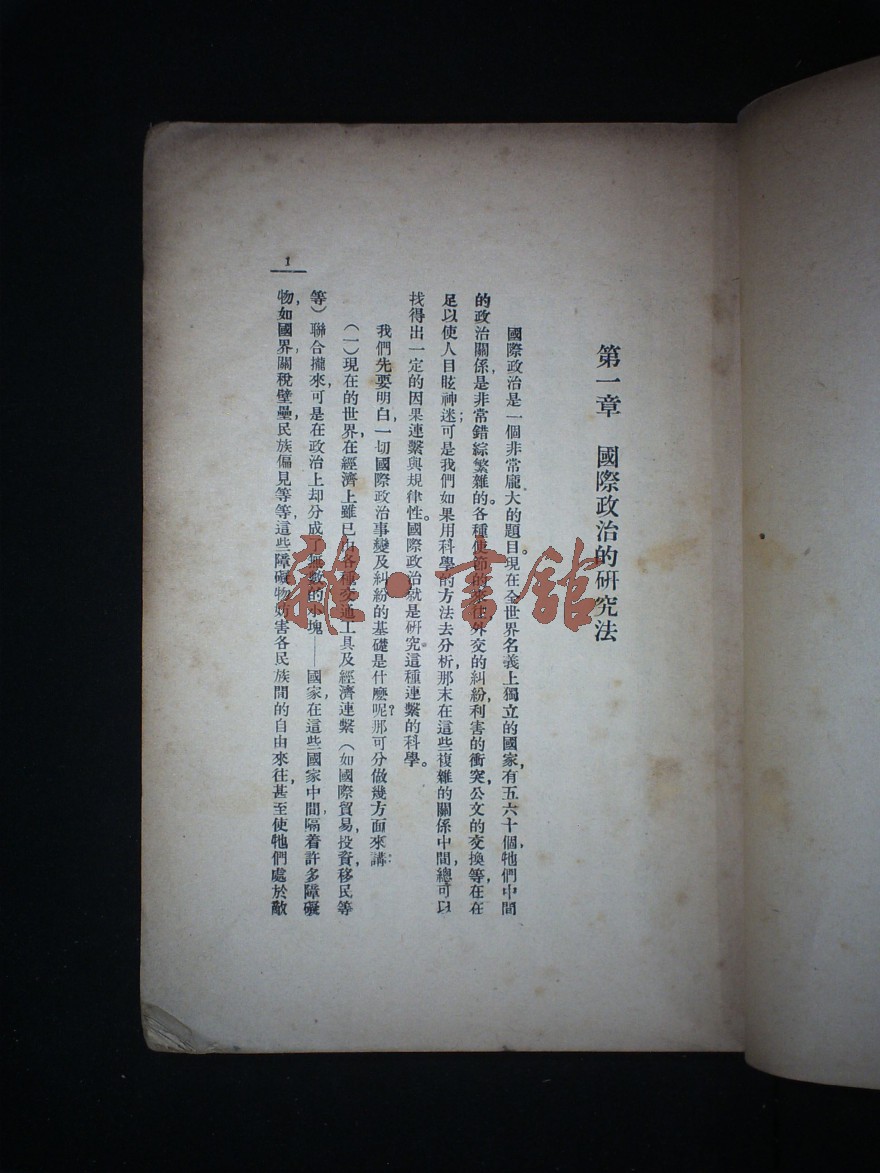 第一章　國際政治的研究法
國際政治是一個非常龐大的題目。現在全世界名義上獨立的國家，有五六十個，牠們中間
的政治關係，是非常錯綜繁雜的。各種使節的來往，外交的糾紛，利害的衝突，公文的交換等，在在
足以使人目眩神迷；可是我們如果用科學的方法去分析，那末在這些複雜的關係中間，總可以
找得出一定的因果連繫與規律性。國際政治就是研究這種連繫的科學。
我們先要明白，一切國際政治事變及糾紛的基礎是什麼呢？那可分做幾方面來講：
（一）現在的世界，在經濟上雖已由各種交通工具及經濟連繫（如國際貿易，投資，移民等
等）聯合攏來，可是在政治上却分成了無數的小塊——國家，在這些國家中間，隔着許多障礙
物，如國界，關稅壁壘，民族偏見等等，這些障礙物妨害各民族間的自由來往，甚至使牠們處於敵
1
雜·書館